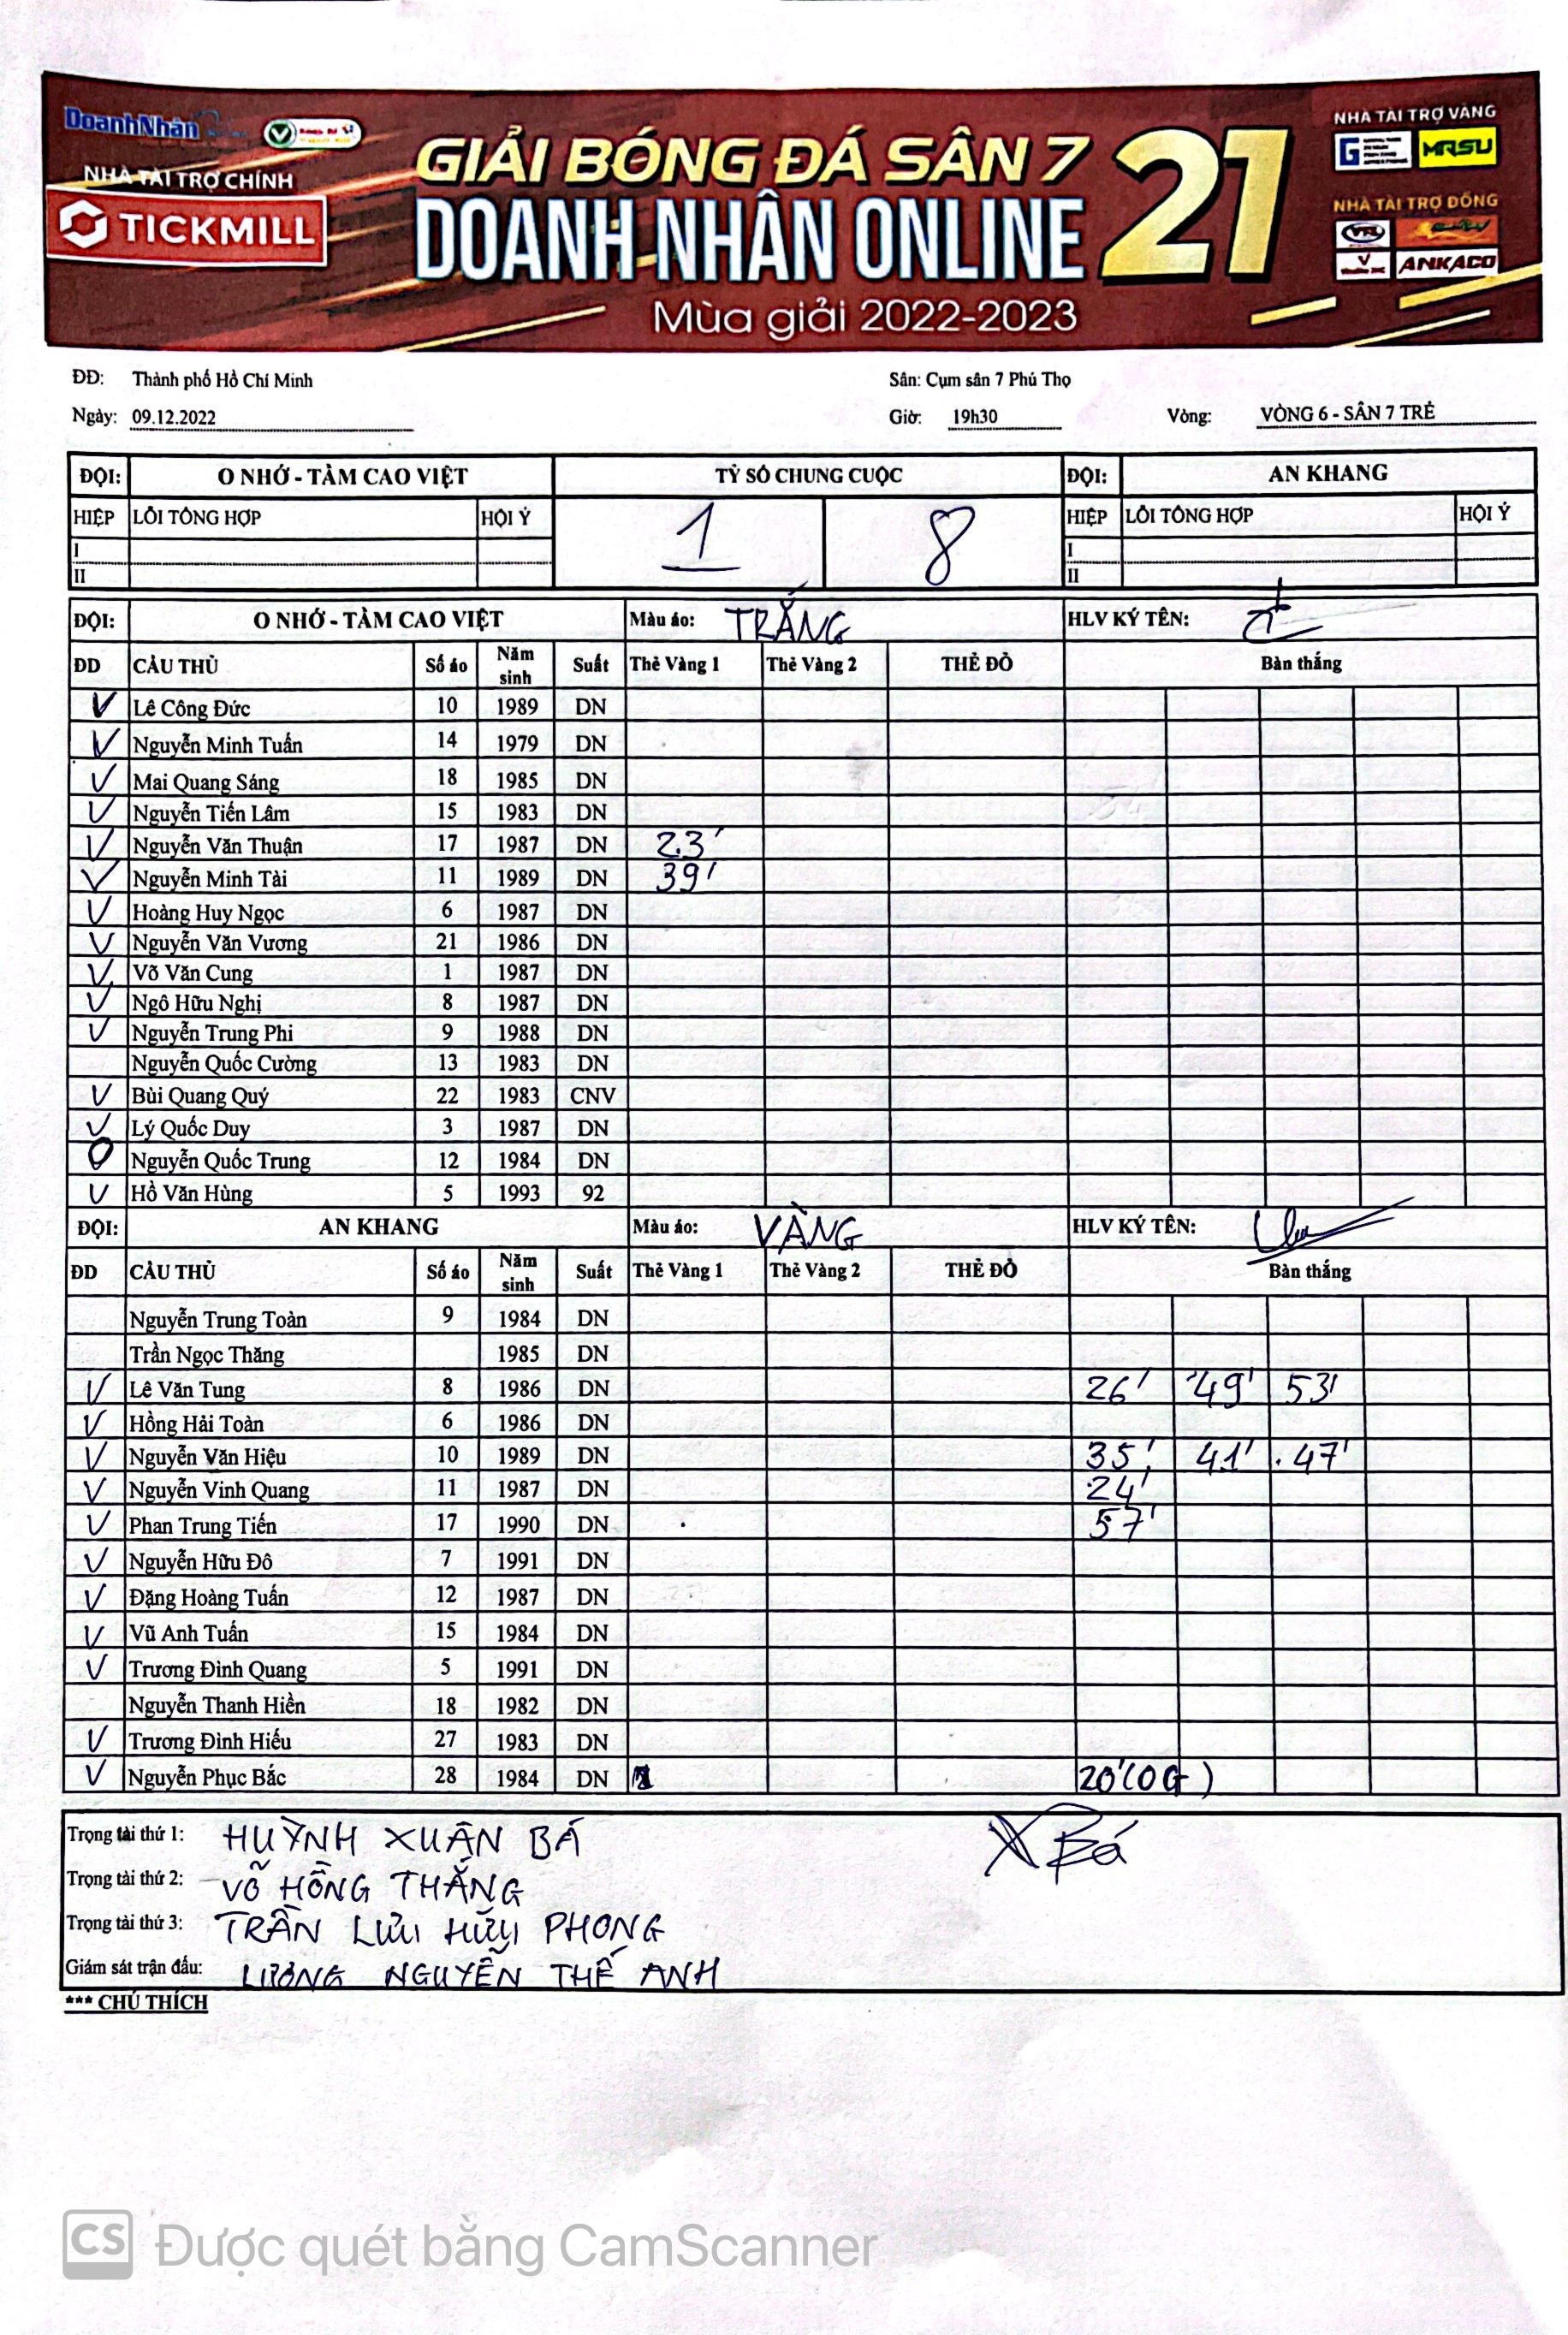 DoanhNhân
NHÀ TÀI TRỢ CHÍNH
TICKMILL
GIẢI BÓNG ĐÁ SÂN 7
DOANH NHÂN ONLINE 21
Mùa giải 2022-2023
NHÀ TÀI TRỢ VÀNG
G MRSU
NHÀ TÀI TRỢ ĐỒNG
ANKACO
ĐĐ: Thành phố Hồ Chí Minh Sân: Cụm sân 7 Phú Thọ
Ngày: 09.12.2022 Giờ: 19h30 Vòng: VÒNG 6 - SÂN 7 TRẺ
ĐỘI: O NHỚ - TẦM CAO VIỆT TỶ SỐ CHUNG CUỘC ĐỘI: AN KHANG
HIỆP LỖI TỔNG HỢP HỘI Ý 1 8 HIỆP LỖI TỔNG HỢP HỘI Ý
I I
II II
ĐỘI: O NHỚ - TẦM CAO VIỆT Màu áo: TRẮNG HLV KÝ TÊN:
ĐD CẦU THỦ Số áo Năm sinh Suất Thẻ Vàng 1 Thẻ Vàng 2 THẺ ĐỎ Bàn thắng
V Lê Công Đức 10 1989 DN
V Nguyễn Minh Tuấn 14 1979 DN
V Mai Quang Sáng 18 1985 DN
V Nguyễn Tiến Lâm 15 1983 DN
V Nguyễn Văn Thuận 17 1987 DN 23'
V Nguyễn Minh Tài 11 1989 DN 39'
V Hoàng Huy Ngọc 6 1987 DN
V Nguyễn Văn Vương 21 1986 DN
V Võ Văn Cung 1 1987 DN
V Ngô Hữu Nghị 8 1987 DN
V Nguyễn Trung Phi 9 1988 DN
Nguyễn Quốc Cường 13 1983 DN
V Bùi Quang Quý 22 1983 CNV
V Lý Quốc Duy 3 1987 DN
Nguyễn Quốc Trung 12 1984 DN
V Hồ Văn Hùng 5 1993 92
ĐỘI: AN KHANG Màu áo: VÀNG HLV KÝ TÊN:
ĐD CẦU THỦ Số áo Năm sinh Suất Thẻ Vàng 1 Thẻ Vàng 2 THẺ ĐỎ Bàn thắng
Nguyễn Trung Toàn 9 1984 DN
Trần Ngọc Thăng 1985 DN
V Lê Văn Tung 8 1986 DN 26' 49' 53'
V Hồng Hải Toàn 6 1986 DN
V Nguyễn Văn Hiệu 10 1989 DN 35' 41' 47'
V Nguyễn Vinh Quang 11 1987 DN 24'
V Phan Trung Tiến 17 1990 DN 57'
V Nguyễn Hữu Đô 7 1991 DN
V Đặng Hoàng Tuấn 12 1987 DN
V Vũ Anh Tuấn 15 1984 DN
V Trương Đình Quang 5 1991 DN
Nguyễn Thanh Hiền 18 1982 DN
V Trương Đình Hiếu 27 1983 DN
V Nguyễn Phục Bắc 28 1984 DN 20'(OG)
Trọng tài thứ 1: HUỲNH XUÂN BÁ XBá
Trọng tài thứ 2: VÕ HỒNG THẮNG
Trọng tài thứ 3: TRẦN LƯU HỮU PHONG
Giám sát trận đấu: LƯƠNG NGUYỄN THẾ ANH
*** CHÚ THÍCH
CS Được quét bằng CamScanner